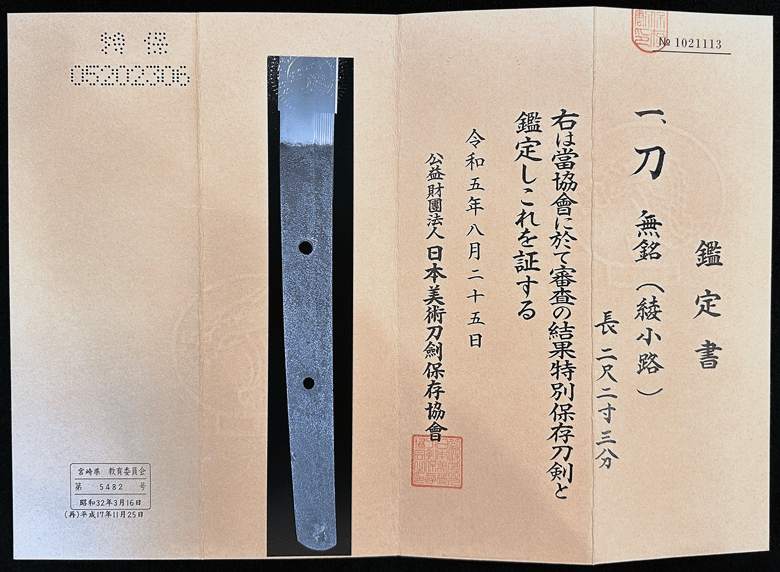 № 1021113
鑑定書
一、刀 無銘（綾小路）
長 二尺二寸三分
右は當協會に於て審査の結果特別保存刀剣と
鑑定しこれを証する
令和五年八月二十五日
公益財團法人 日本美術刀劍保存協會
特保
05202306
宮崎県 教育委員会
第 5482 号
昭和32年3月16日
(再)平成17年11月25日